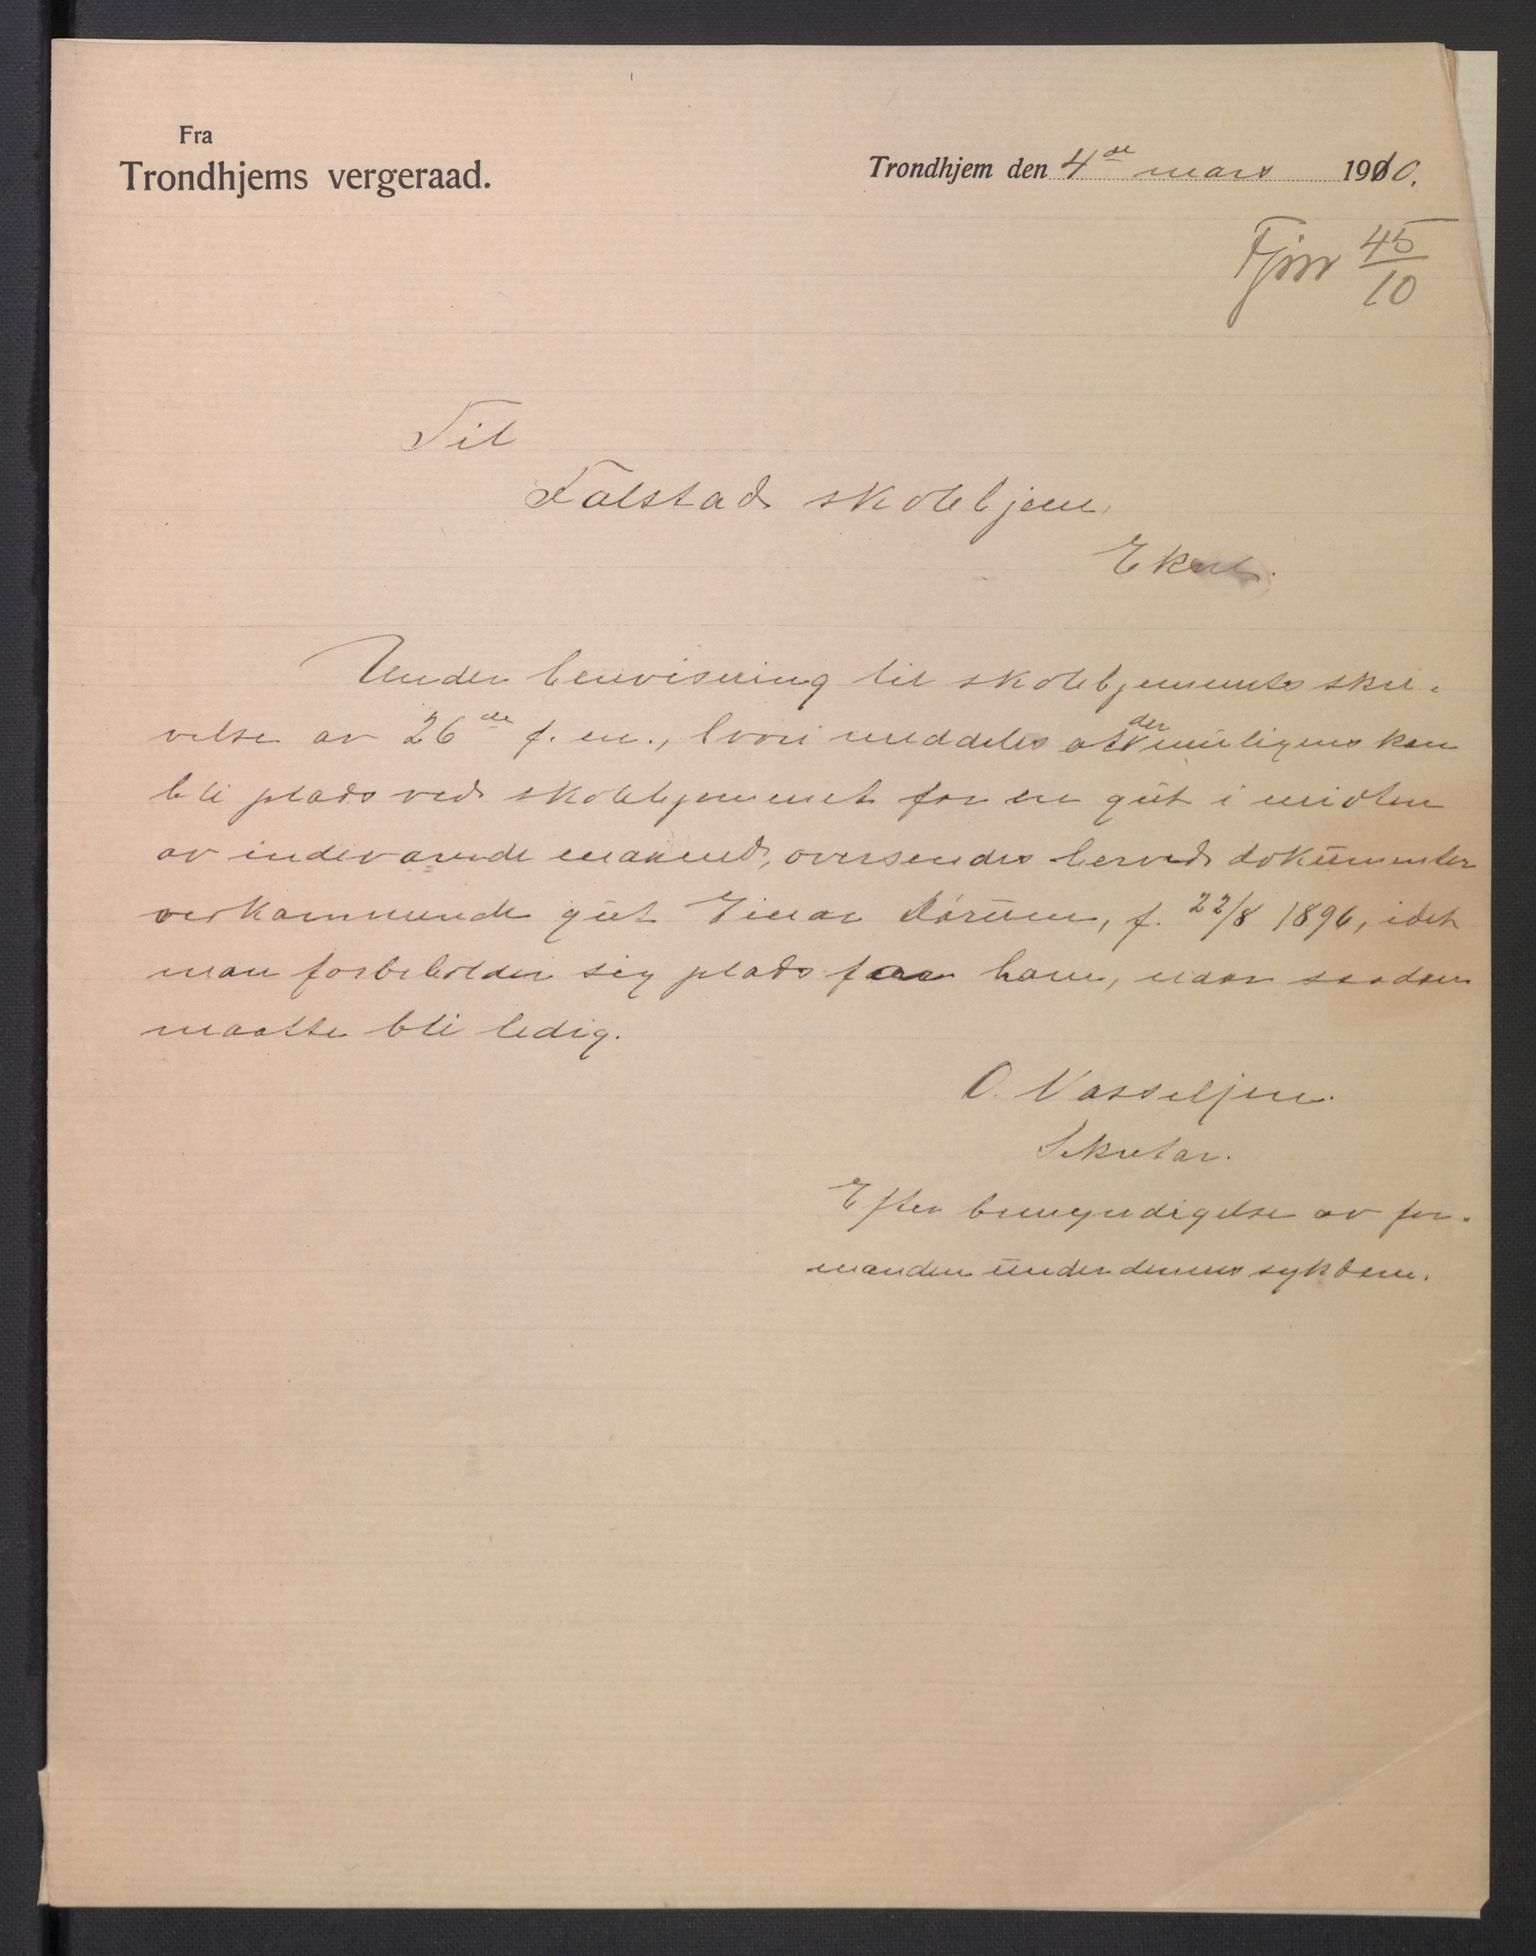 Fra
Trondhjems vergeraad.
Trondhjem den 4de mars 1910.
Fjnr 45/10
Til
Falstad skolehjem,
Eknæs.
Under henvisning til skolehjemmets skri-
velse av 26de f. m., hvori meddeles at der muligens kan
bli plads ved skolehjemmet for en gut i midten
av indeværende maaned, oversendes herved dokumenter
vedkommende gut Einar Dørum, f. 22/8 1896, idet
man forbeholder sig plads for ham, naar saadan
maatte bli ledig.
O. Vasseljen.
Sekretær.
Efter bemyndigelse av for-
manden under dennes sykdom.